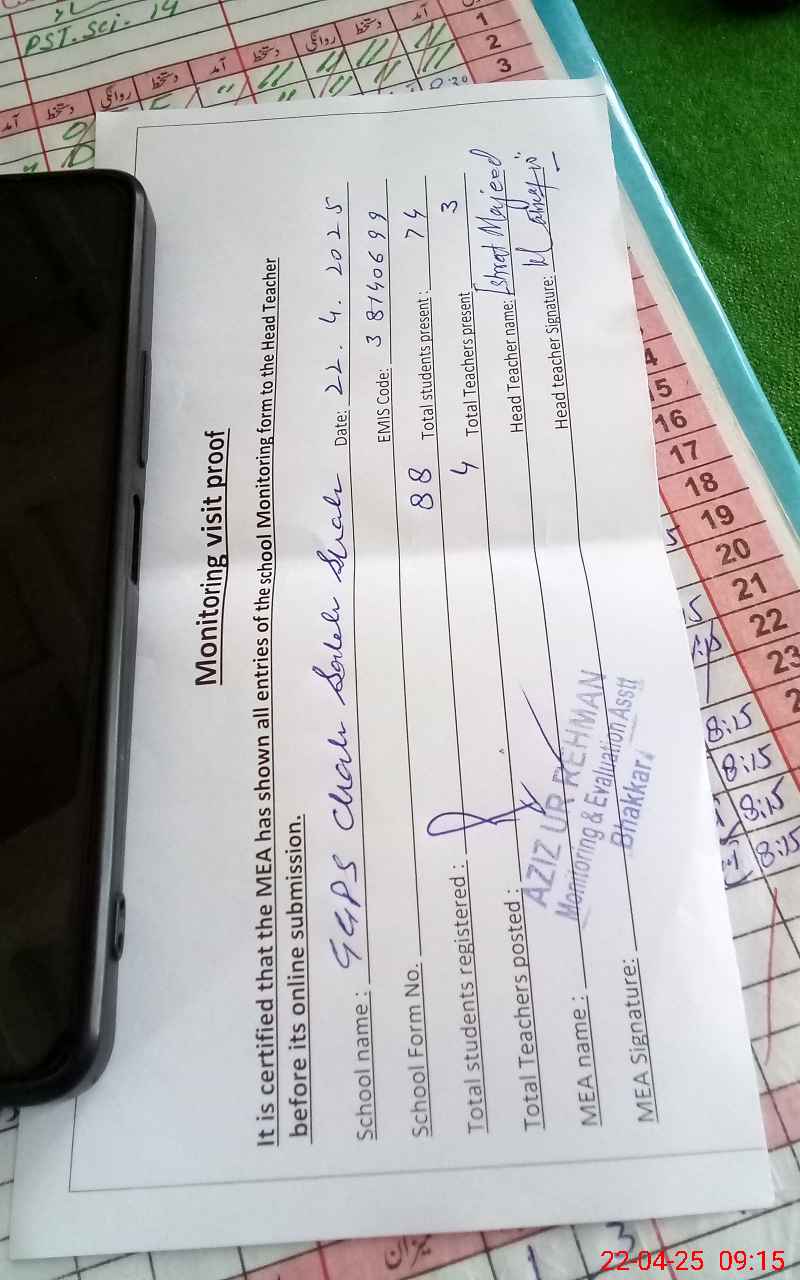 PST. Sci. 14
آمد دستخط روانگی دستخط آمد دستخط روانگی دستخط آمد
1
2
3
Monitoring visit proof
It is certified that the MEA has shown all entries of the school Monitoring form to the Head Teacher
before its online submission.
School name : GGPS Chah Saleh Shah Date: 22.4.2025
School Form No. EMIS Code: 38140699
Total students registered : 88 Total students present : 74
Total Teachers posted : 4 Total Teachers present 3
MEA name : Head Teacher name: Ishrat Majeed
MEA Signature: Head teacher Signature:
AZIZ UR REHMAN
Monitoring & Evaluation Asstt
Bhakkar
15
16
17
18
19
20
21
22
23
8:15
8:15
8:15
8:15
میزان
3
22-04-25 09:15